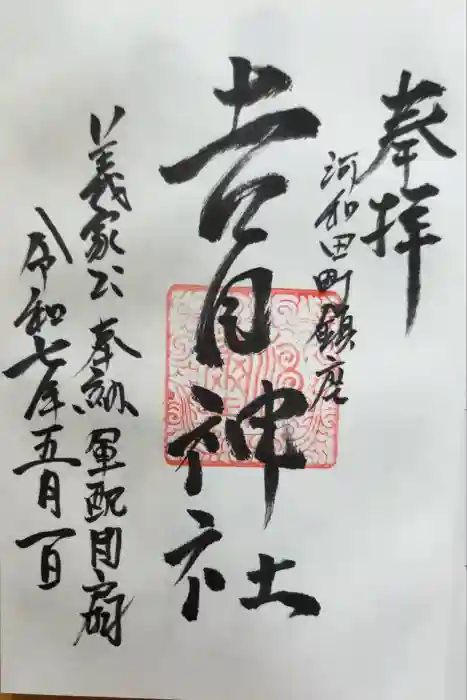 奉拝
河和田町鎮座
吉田神社
義家公奉納軍配団扇
令和七年五月一日